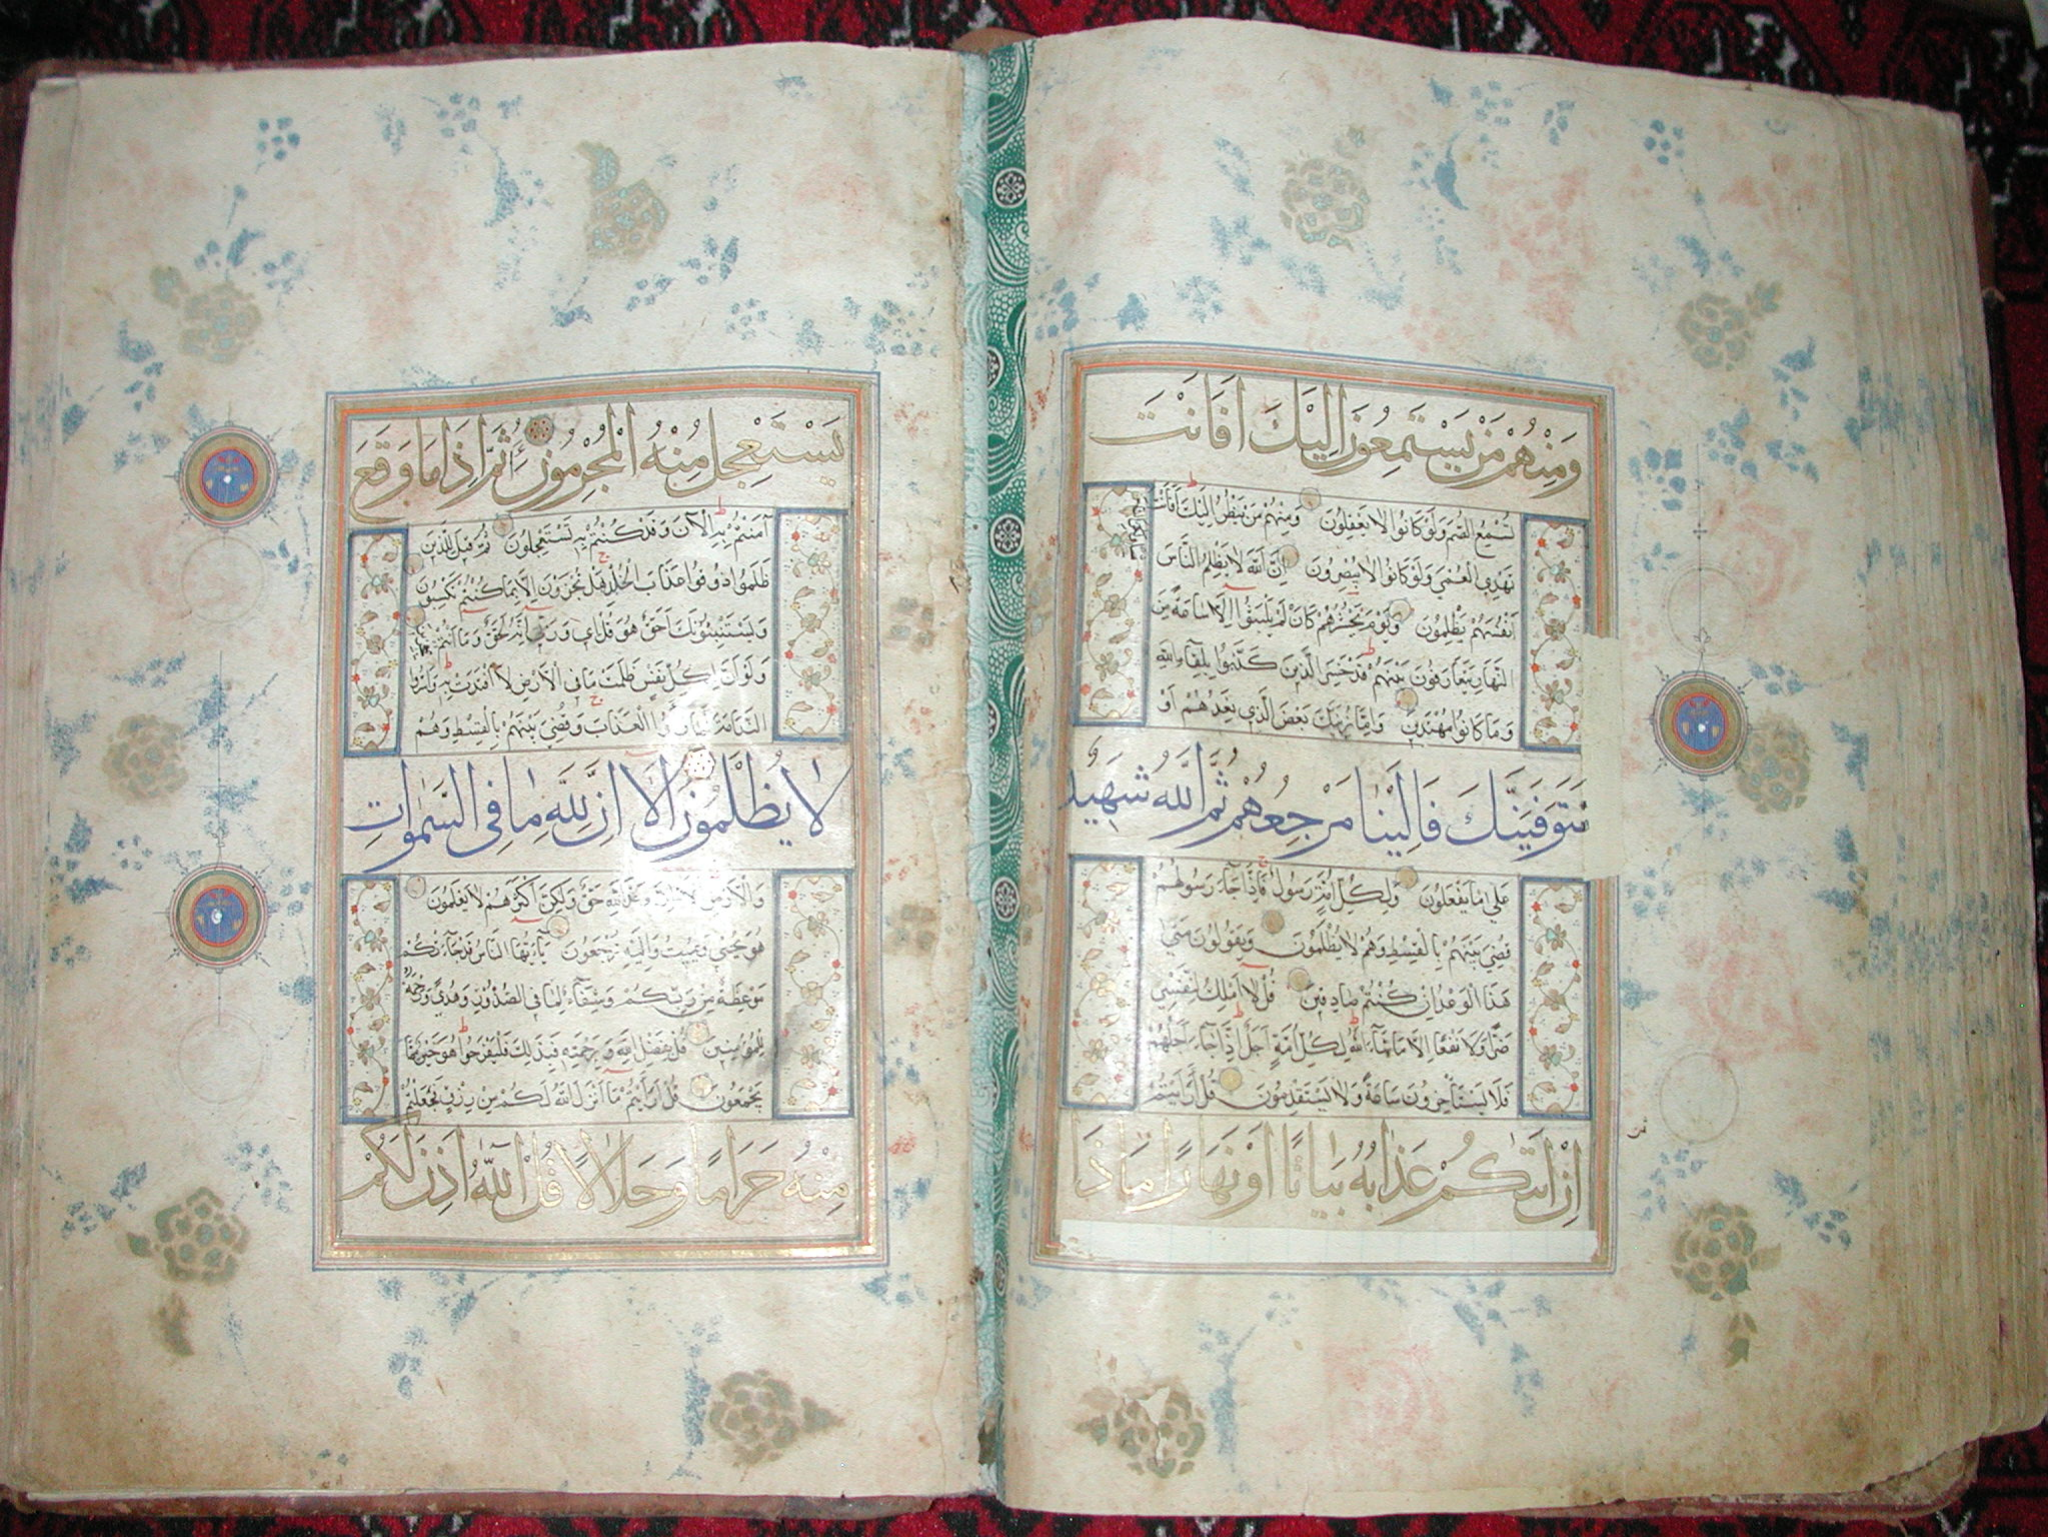 وَمِنْهُمْ مَنْ يَسْتَمِعُونَ اِلَيْكَ اَفَاَنْتَ
تُسْمِعُ الصُّمَّ وَلَوْ كَانُوا لَا يَعْقِلُونَ وَمِنْهُمْ مَنْ يَنْظُرُ اِلَيْكَ اَفَاَنْتَ
تَهْدِي الْعُمْيَ وَلَوْ كَانُوا لَا يُبْصِرُونَ اِنَّ اللّٰهَ لَا يَظْلِمُ النَّاسَ
اَنْفُسَهُمْ يَظْلِمُونَ وَيَوْمَ يَحْشُرُهُمْ كَاَنْ لَمْ يَلْبَثُوا اِلَّا سَاعَةً مِنَ
النَّهَارِ يَتَعَارَفُونَ بَيْنَهُمْ قَدْ خَسِرَ الَّذِينَ كَذَّبُوا بِلِقَاءِ اللّٰهِ
وَمَا كَانُوا مُهْتَدِينَ وَاِمَّا نُرِيَنَّكَ بَعْضَ الَّذِي نَعِدُهُمْ اَوْ
نَتَوَفَّيَنَّكَ فَاِلَيْنَا مَرْجِعُهُمْ ثُمَّ اللّٰهُ شَهِيدٌ
عَلٰى مَا يَفْعَلُونَ وَلِكُلِّ اُمَّةٍ رَسُولٌ فَاِذَا جَاءَ رَسُولُهُمْ
قُضِيَ بَيْنَهُمْ بِالْقِسْطِ وَهُمْ لَا يُظْلَمُونَ وَيَقُولُونَ مَتٰى
هٰذَا الْوَعْدُ اِنْ كُنْتُمْ صَادِقِينَ قُلْ لَا اَمْلِكُ لِنَفْسِي
ضَرًّا وَلَا نَفْعًا اِلَّا مَا شَاءَ اللّٰهُ لِكُلِّ اُمَّةٍ اَجَلٌ اِذَا جَاءَ اَجَلُهُمْ
فَلَا يَسْتَأْخِرُونَ سَاعَةً وَلَا يَسْتَقْدِمُونَ قُلْ اَرَاَيْتُمْ
اِنْ اَتٰيكُمْ عَذَابُهُ بَيَاتًا اَوْ نَهَارًا مَاذَا
ثمن
يَسْتَعْجِلُ مِنْهُ الْمُجْرِمُونَ اَثُمَّ اِذَا مَا وَقَعَ
آمَنْتُمْ بِهِ آلْآنَ وَقَدْ كُنْتُمْ بِهِ تَسْتَعْجِلُونَ ثُمَّ قِيلَ لِلَّذِينَ
ظَلَمُوا ذُوقُوا عَذَابَ الْخُلْدِ هَلْ تُجْزَوْنَ اِلَّا بِمَا كُنْتُمْ تَكْسِبُونَ
وَيَسْتَنْبِئُونَكَ اَحَقٌّ هُوَ قُلْ اِي وَرَبِّي اِنَّهُ لَحَقٌّ وَمَا اَنْتُمْ
وَلَوْ اَنَّ لِكُلِّ نَفْسٍ ظَلَمَتْ مَا فِي الْاَرْضِ لَافْتَدَتْ بِهِ وَاَسَرُّوا
النَّدَامَةَ لَمَّا رَاَوُا الْعَذَابَ وَقُضِيَ بَيْنَهُمْ بِالْقِسْطِ وَهُمْ
لَا يُظْلَمُونَ اَلَا اِنَّ لِلّٰهِ مَا فِي السَّمٰوَاتِ
وَالْاَرْضِ اَلَا اِنَّ وَعْدَ اللّٰهِ حَقٌّ وَلٰكِنَّ اَكْثَرَهُمْ لَا يَعْلَمُونَ
هُوَ يُحْيِي وَيُمِيتُ وَاِلَيْهِ تُرْجَعُونَ يَا اَيُّهَا النَّاسُ قَدْ جَاءَتْكُمْ
مَوْعِظَةٌ مِنْ رَبِّكُمْ وَشِفَاءٌ لِمَا فِي الصُّدُورِ وَهُدًى وَرَحْمَةٌ
لِلْمُؤْمِنِينَ قُلْ بِفَضْلِ اللّٰهِ وَبِرَحْمَتِهِ فَبِذٰلِكَ فَلْيَفْرَحُوا هُوَ خَيْرٌ مِمَّا
يَجْمَعُونَ قُلْ اَرَاَيْتُمْ مَا اَنْزَلَ اللّٰهُ لَكُمْ مِنْ رِزْقٍ فَجَعَلْتُمْ
مِنْهُ حَرَامًا وَحَلَالًا قُلْ آللّٰهُ اَذِنَ لَكُمْ